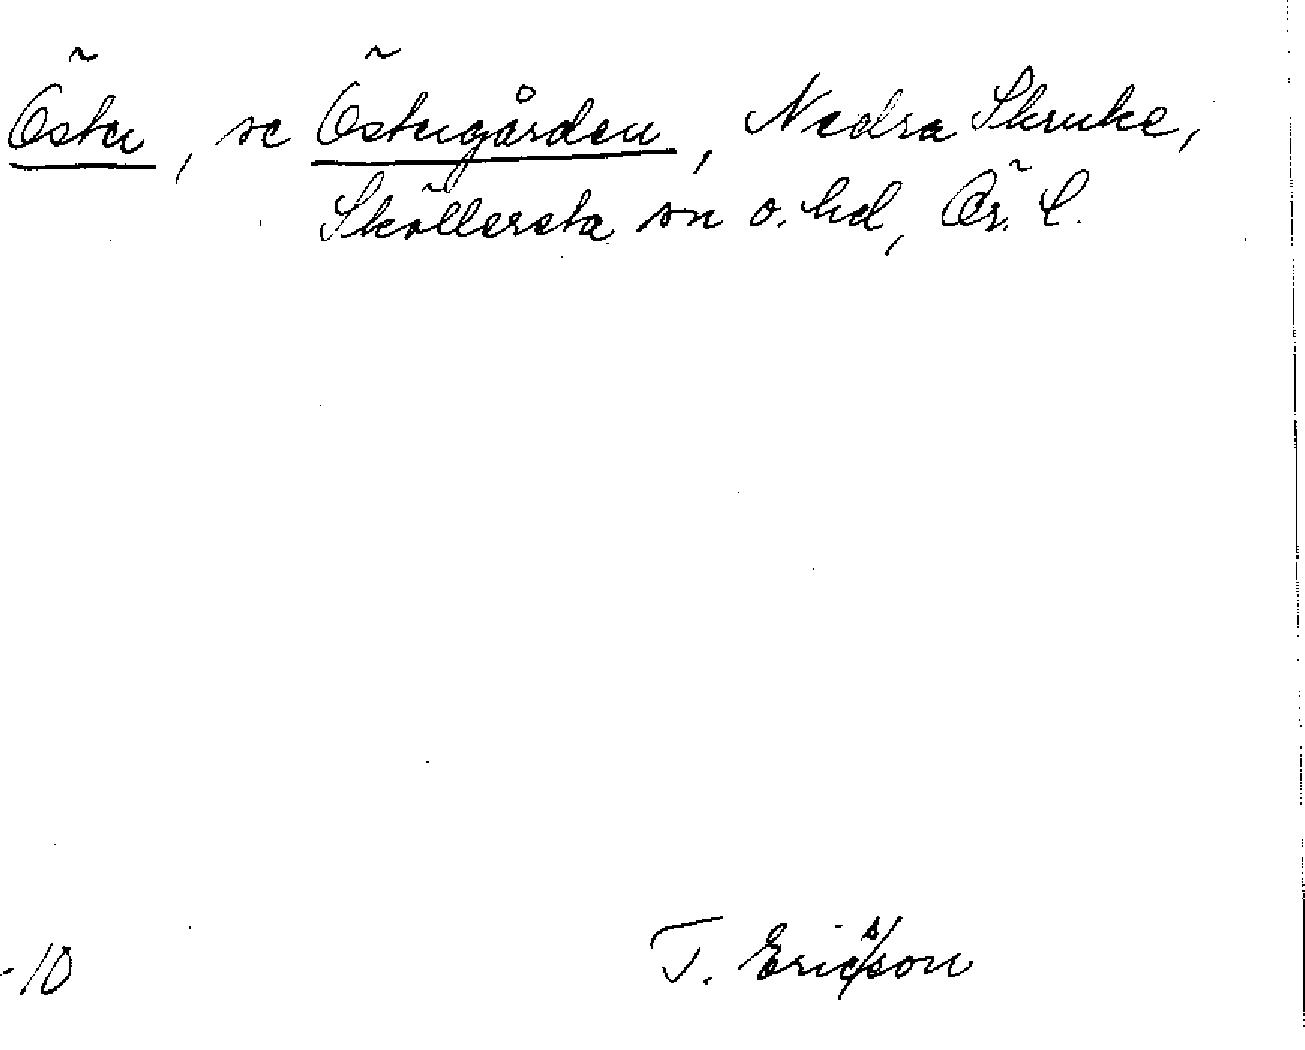 Öster, se Östergården, Nedra Skruke,
Sköllersta sn o. hd, Ör. l.
-10
T. Ericsson